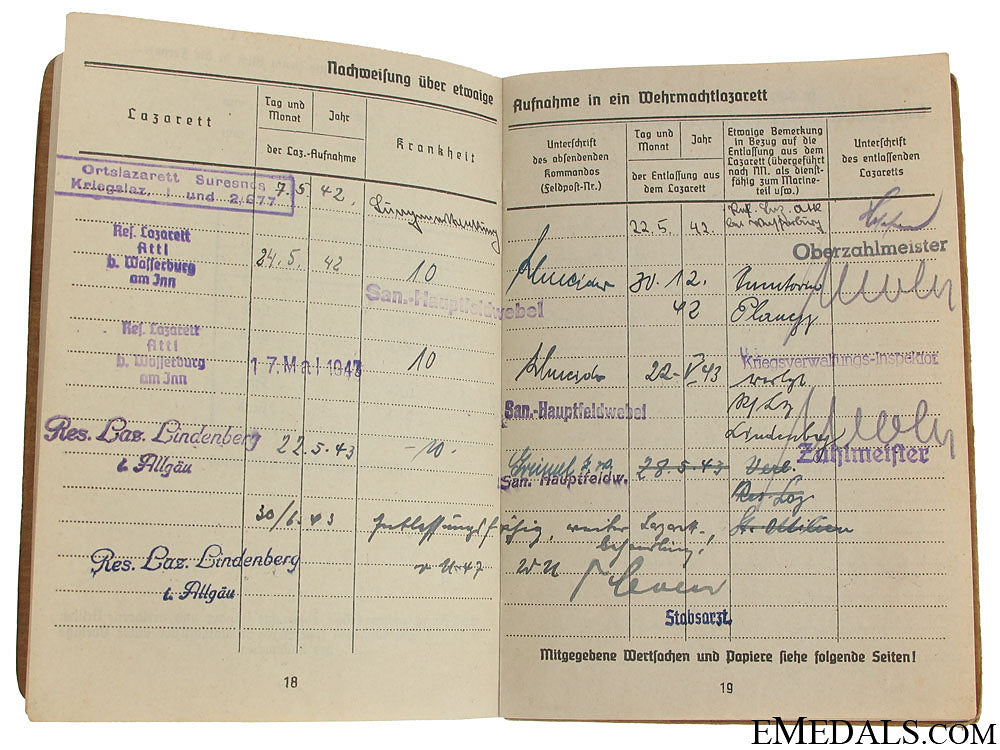 Nachweisung über etwaige
Lazarett
Tag und
Monat
Jahr
der Laz.-Aufnahme
Krankheit
Ortslazarett Suresnes
Kriegslaz. I und 2/677
7.5. 42.
Res. Lazarett
Attl
b. Wasserburg
am Inn
24.5. 42
10
San.-Hauptfeldwebel
Res. Lazarett
Attl
b. Wasserburg
am Inn
17. Mai 1943
10
Res. Laz. Lindenberg
i. Allgäu
22.5.43
-10.
30/6. 43
Res. Laz. Lindenberg
i. Allgäu
18
Aufnahme in ein Wehrmachtlazarett
Unterschrift
des absendenden
Kommandos
(Feldpost-Nr.)
Tag und
Monat
Jahr
der Entlassung aus
dem Lazarett
Etwaige Bemerkung
in Bezug auf die
Entlassung aus dem
Lazarett (übergeführt
nach NN. als dienst-
fähig zum Marine-
teil usw.)
Unterschrift
des entlassenden
Lazaretts
22.5. 42.
Oberzahlmeister
30.12.
42
Kriegsverwaltungs-Inspektor
22. V 43
San.-Hauptfeldwebel
Lindenberg
Zahlmeister
28.5.43 Verl.
San. Hauptfeldw.
Res. Laz
St. Ottilien
Entlassungsfähig, weiter Lazarett-
behandlung.
Stabsarzt.
Mitgegebene Wertsachen und Papiere siehe folgende Seiten!
19
EMEDALS.COM